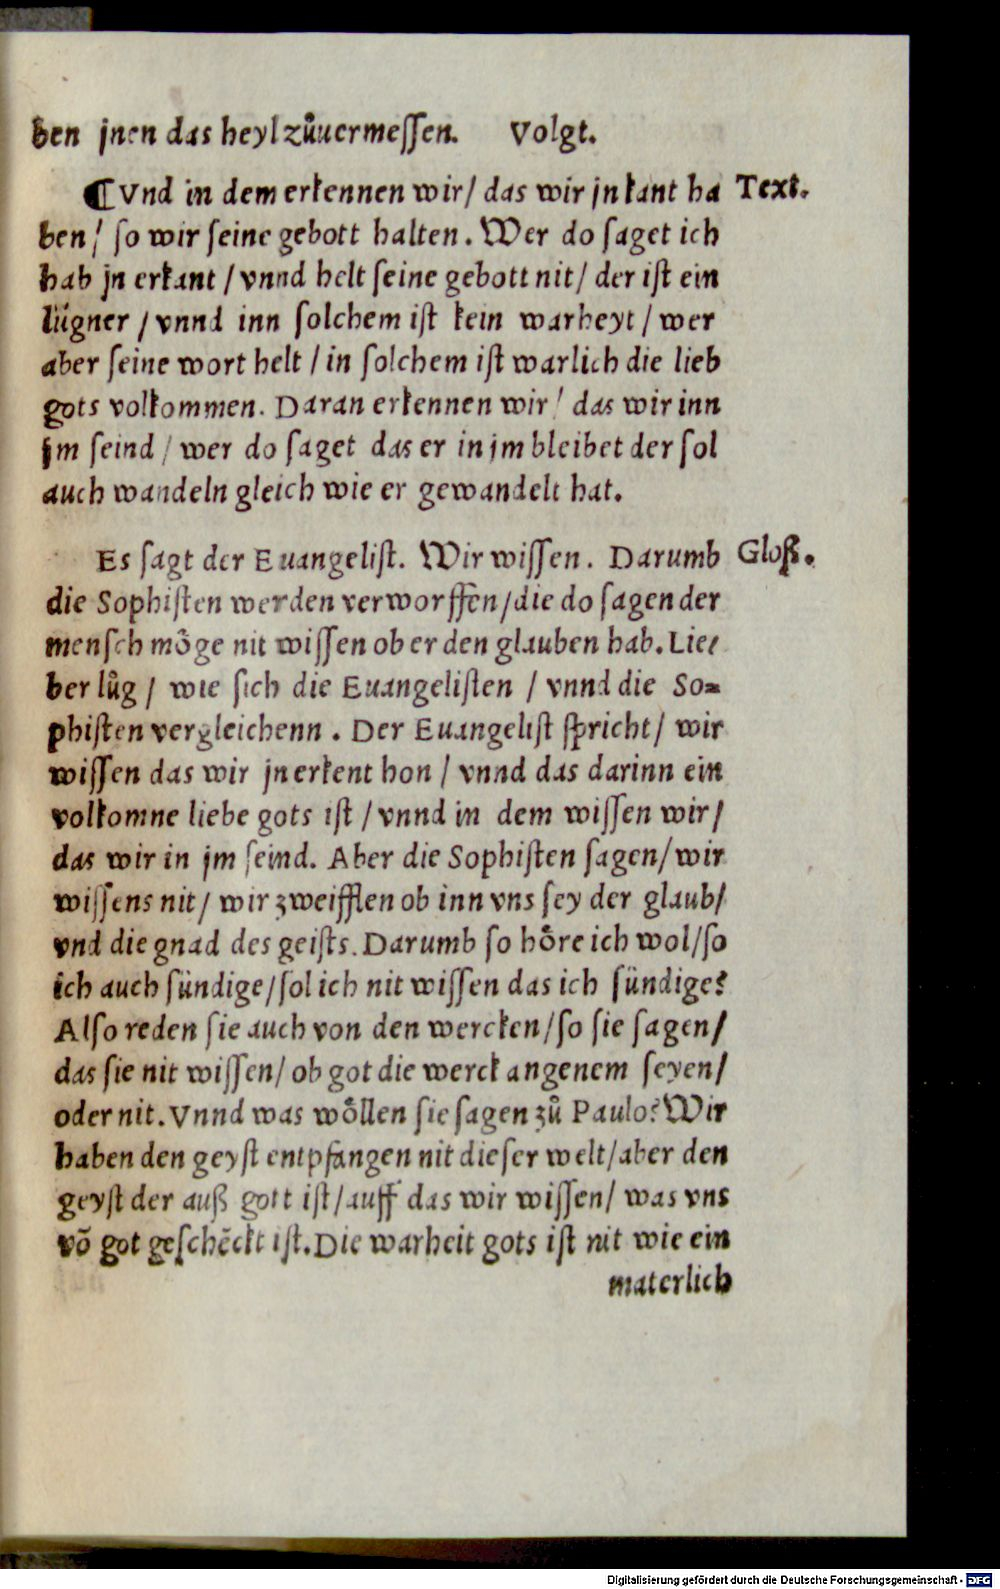 ben jnen das heyl zůuermessen. Volgt.
¶ Vnd in dem erkennen wir/ das wir jn kant ha Text.
ben/ so wir seine gebott halten. Wer do saget ich
hab jn erkant / vnnd helt seine gebott nit/ der ist ein
lügner / vnnd inn solchem ist kein warheyt / wer
aber seine wort helt / in solchem ist warlich die lieb
gots volkommen. Daran erkennen wir/ das wir inn
jm seind / wer do saget das er in jm bleibet der sol
auch wandeln gleich wie er gewandelt hat.
Es sagt der Euangelist. Wir wissen. Darumb Gloß.
die Sophisten werden verworffen/ die do sagen der
mensch möge nit wissen ob er den glauben hab. Lie/
ber lůg / wie sich die Euangelisten / vnnd die So=
phisten vergleichenn. Der Euangelist spricht/ wir
wissen das wir jn erkent hon / vnnd das darinn ein
volkomne liebe gots ist / vnnd in dem wissen wir/
das wir in jm seind. Aber die Sophisten sagen/ wir
wissens nit/ wir zweifflen ob inn vns sey der glaub/
vnd die gnad des geists. Darumb so höre ich wol/ so
ich auch sündige/ sol ich nit wissen das ich sündige?
Also reden sie auch von den wercken/ so sie sagen/
das sie nit wissen/ ob got die werck angenem seyen/
oder nit. Vnnd was wöllen sie sagen zů Paulo? Wir
haben den geyst entpfangen nit dieser welt/ aber den
geyst der auß gott ist/ auff das wir wissen/ was vns
võ got geschẽckt ist. Die warheit gots ist nit wie ein
materlich
Digitalisierung gefördert durch die Deutsche Forschungsgemeinschaft - DFG